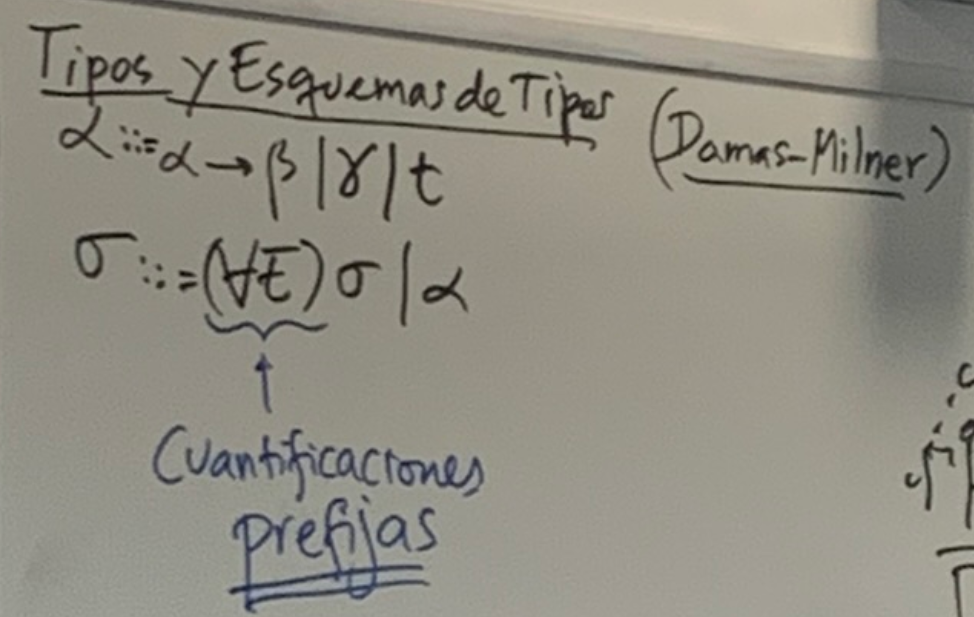 Tipos y Esquemas de Tipos (Damas-Milner)
α ::= α → β | γ | t
σ ::= (∀t) σ | α
↑
Cuantificaciones
prefijas